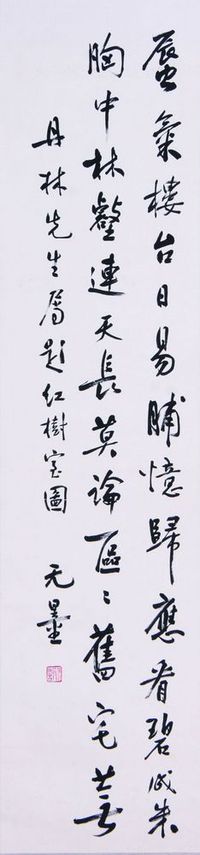 蜃氣樓台日易晡憶歸應看碧成朱
胸中林壑連天長莫論區〻舊宅蕪
丹林先生屬題紅樹室圖
无量